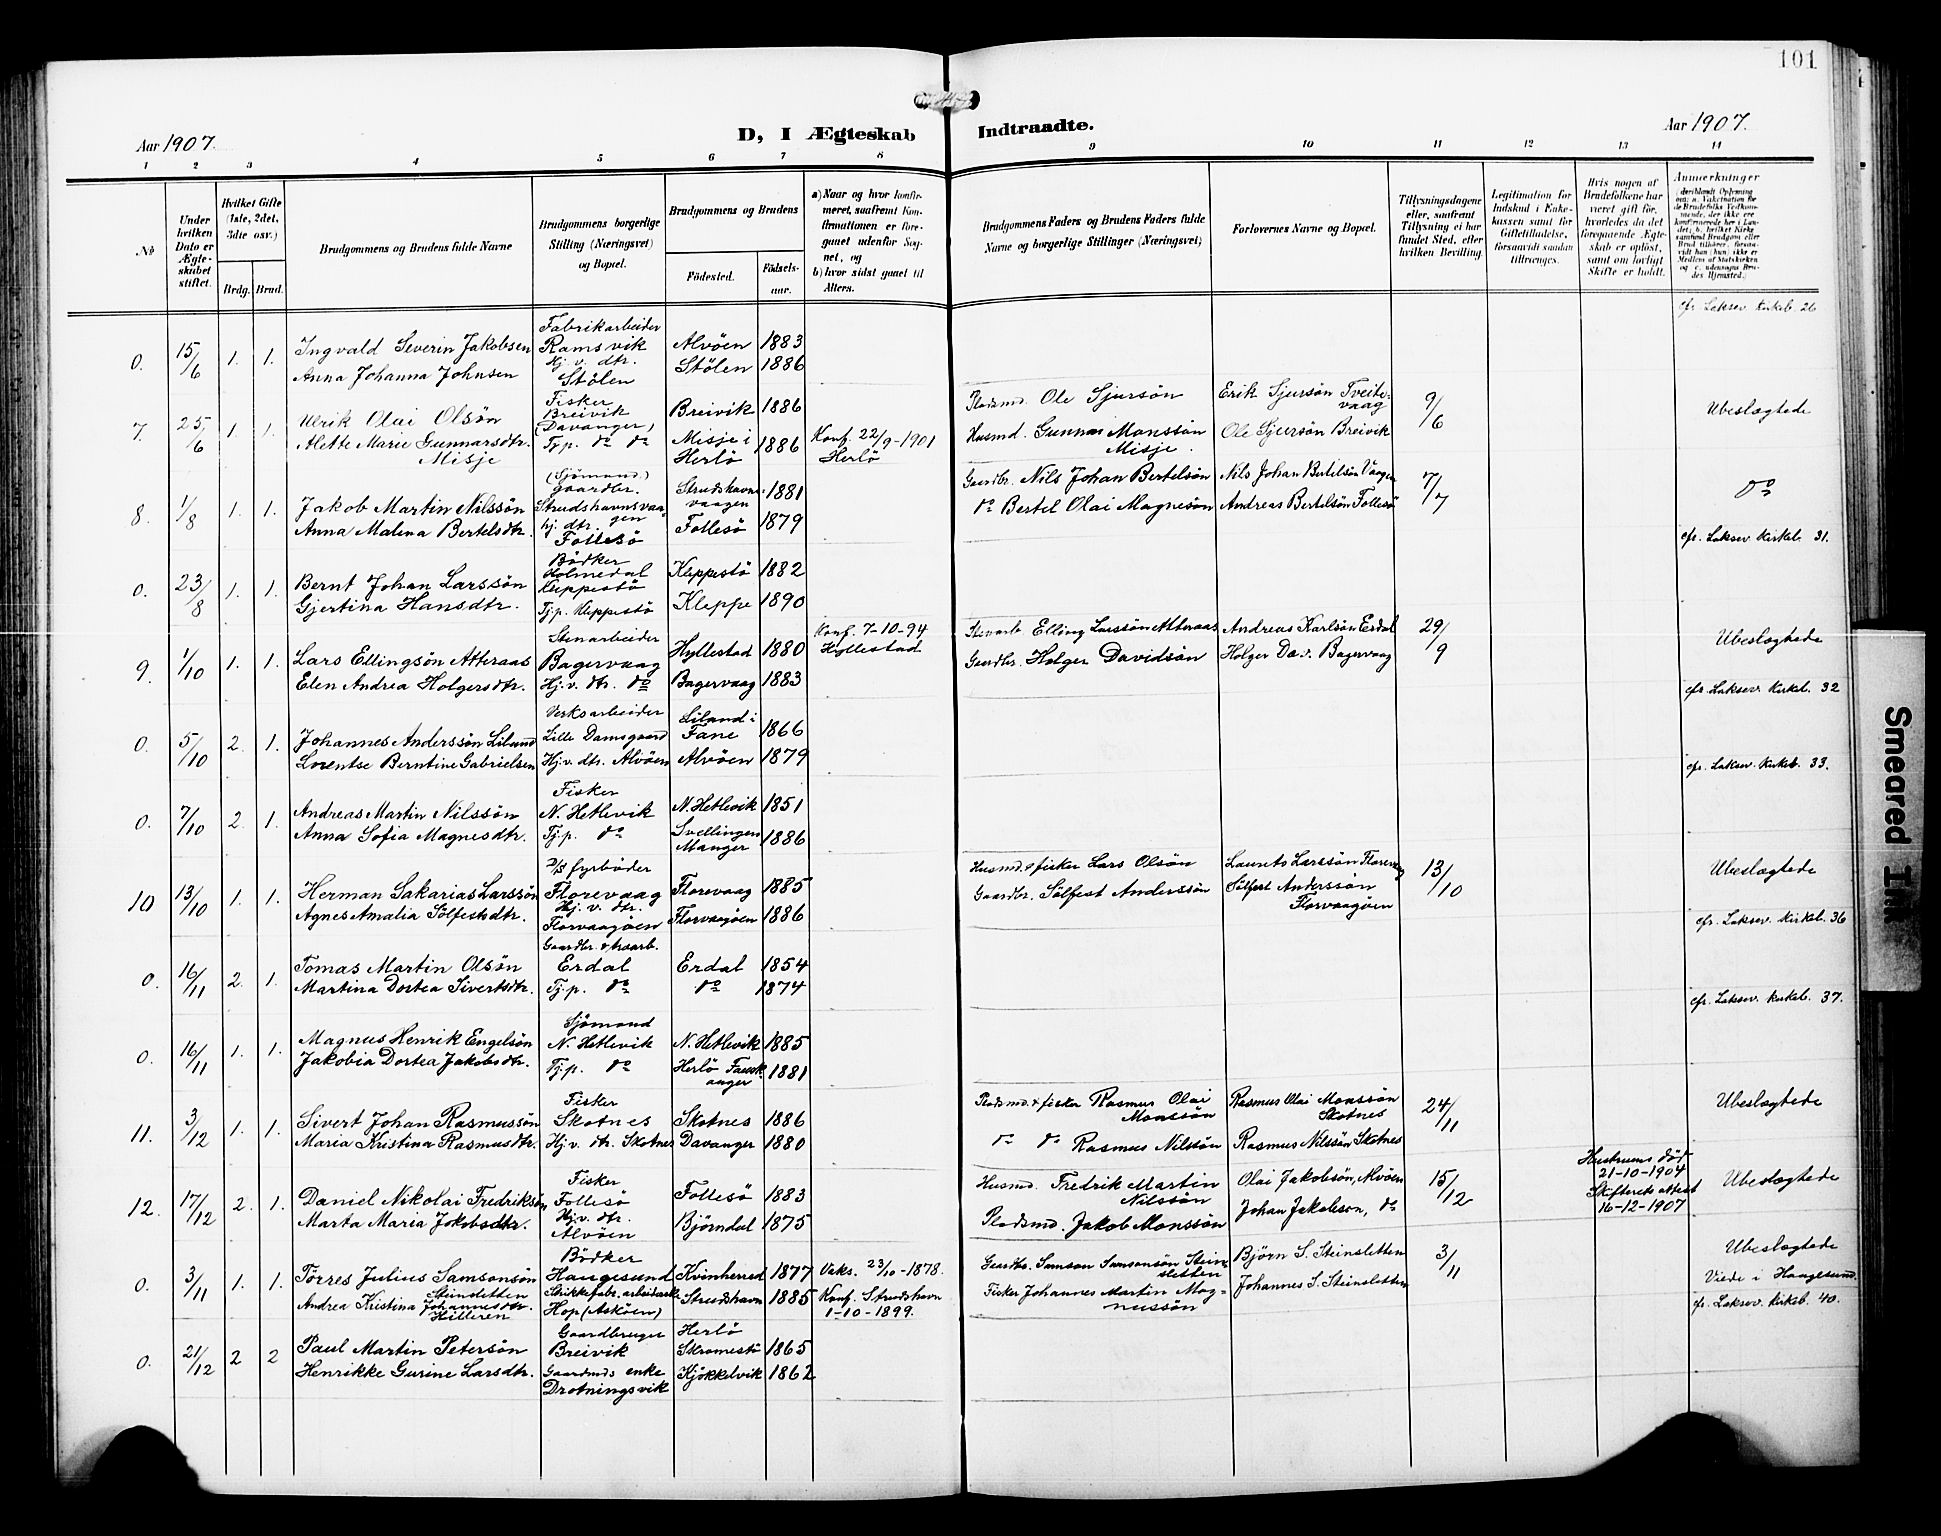 101
Aar 1907.
D, I Ægteskab Indtraadte.
Aar 1907.
1 2 3 4 5 6 7 8 9 10 11 12 13 14
No
Under hvilken Dato er Ægteskabet stiftet.
Hvilket Gifte (1ste, 2det, 3die osv.)
Brdg. Brud.
Brudgommens og Brudens fulde Navne
Brudgommens borgerlige Stilling (Næringsvei) og Bopæl.
Brudgommens og Brudens
Fødested. Fødselsaar.
a) Naar og hvor konfirmeret, saafremt Konfirmationen er foregaaet udenfor Sognet, og
b) hvor sidst gaaet til Alters.
Brudgommens Faders og Brudens Faders fulde Navne og borgerlige Stillinger (Næringsvei)
Forlovernes Navne og Bopæl.
Tillysningsdagene eller, saafremt Tillysning ei har fundet Sted, efter hvilken Bevilling.
Legitimation for Indskud i Enkekassen samt for Giftetilladelse, forsaavidt saadan tiltrænges.
Hvis nogen af Brudefolkene har været gift før, hvorledes da det foregaaende Ægteskab er opløst, samt om lovligt Skifte er holdt.
Anmærkninger
cfr. Laksev. Kirkeb. 26
0. 15/6 1. 1. Ingvald Severin Jakobsen
Anna Johanna Johnsen
Fabrikarbeider
Ramsvik
Hj. v. dtr.
Stölen
Alvöen 1883
Stölen 1886
7. 25/6 1. 1. Ulrik Olai Olsön
Alette Marie Gunnarsdtr.
Misje
Fisker
Breivik
(Davanger)
Tj. p. do do
Breivik 1886
Misje i Herlö 1886
Konf. 22/9-1901
Herlö
Pladsmd. Ole Sjursön
Husmd. Gunnar Monssön
Misje.
Erik Sjursön Tveitevaag
Ole Sjursön Breivik
9/6
Ubeslægtede
8. 1/8 1. 1. Jakob Martin Nilssön
Anna Malena Bertelsdtr.
(Sjömand)
Gaardbr.
Strudshavnsvaagen
hj. dtr.
Follesö
Strudshavnsvaagen 1881
Follesö 1879
Gaardbr. Nils Johan Bertelsön
do Bertel Olai Magnesön
Nils Johan Bertelsön Vaagen
Andreas Bertelsön Follesö
7/7
do
cfr. Laksev. Kirkeb. 31.
0. 23/8 1. 1. Bernt Johan Larssön
Gjertina Hansdtr.
Bödker
Holmedal
Kleppestö
Tj. p. Kleppestö
Kleppestö 1882
Kleppe 1890
9. 1/10 1. 1. Lars Ellingsön Atteraas
Elen Andrea Holgersdtr.
Stenarbeider
Bagervaag
Hj. v. dtr. do
Hyllestad 1880
Bagervaag 1883
Konf. 7-10-94
Hyllestad
Stenarb. Elling Larssön Atteraas
Gaardbr. Holger Davidsön
Andreas Karlsön Erdal
Holger Dav. Bagervaag
29/9
Ubeslægtede
cfr. Laksev. Kirkeb. 32
0. 5/10 2. 1. Johannes Anderssön Liland
Lorentse Berntine Gabrielsen
Verksarbeider
Lille Damsgaard
Hj. v. dtr. Alvöen
Liland i Fane 1866
Alvöen 1879
cfr. Laksev. Kirkeb. 33.
0. 7/10 2. 1. Andreas Martin Nilssön
Anna Sofia Magnesdtr.
Fisker
N. Hetlevik
Tj. p. do
N. Hetlevik 1851
Svellingen Manger 1886
10 13/10 1. 1. Herman Sakarias Larssön
Agnes Amalia Sölfestsdtr.
D/S fyrböder
Florevaag
Hj. v. dtr.
Florvaagöen
Florevaag 1885
Florvaagöen 1886
Husmd. & fisker Lars Olsön
Gaardbr. Sölfest Anderssön
Laurits Larssön Florevaag
Sölfest Anderssön
Florvaagöen
13/10
Ubeslægtede
cfr. Laksev. Kirkeb. 36
0. 16/11 2. 1. Tomas Martin Olsön
Martina Dortea Sivertsdtr.
Gaardbr.
Erdal
Tj. p. do
Erdal 1854
do 1874
cfr. Laksev. Kirkeb. 37.
0. 16/11 1. 1. Magnus Henrik Engelsön
Jakobia Dortea Jakobsdtr.
Sjömand
N. Hetlevik
Tj. p. do
N. Hetlevik 1885
Herlö Fauskanger 1881
11. 3/12 1. 1. Sivert Johan Rasmussön
Maria Kristina Rasmusdtr.
Fisker
Skotnes
Hj. v. dtr. Skotnes
Skotnes 1886
Davanger 1880
Pladsmd. & fisker Rasmus Olai Monssön
do do Rasmus Nilssön
Rasmus Olai Monssön
Skotnes
Rasmus Nilssön Skotnes
24/11
Ubeslægtede
12. 17/12 2. 1. Daniel Nikolai Fredriksön
Marta Maria Jakobsdtr.
Fisker
Follesö
Hj. v. dtr.
Alvöen
Follesö 1883
Björndal 1875
Husmd. Fredrik Martin Nilssön
Pladsmd. Jakob Monssön
Olai Jakobsön, Alvöen
Johan Jakobson, do
15/12
Hustruens död
21-10-1904
Skifterets attest
16-12-1907
Ubeslægtede
0. 3/11 1. 1. Törres Julius Samsonsön
Steinsletten
Andrea Kristina Johannesdtr.
Hilleren
Bödker
Haugesund
Strikkefab. arbeiderske
Hop (Asköen)
Kvinherred 1877
Strudshavn 1885
Vaks. 23/10-1878.
Konf. Strudshavn
1-10-1899.
Gaardbr. Samson Samsonsön Steinsletten
Fisker Johannes Martin Magnussön
Björn S. Steinsletten
Johannes S. Steinsletten
3/11
Ubeslægtede
Viede i Haugesund.
cfr. Laksev. Kirkeb. 40.
0. 21/12 2 2 Paul Martin Petersön
Henrikke Gurine Larsdtr.
Gaardbruger
Breivik
Gaardmds enke
Drotningsvik
Herlö
Skromestö 1865
Kjökkelvik 1862
Smeared